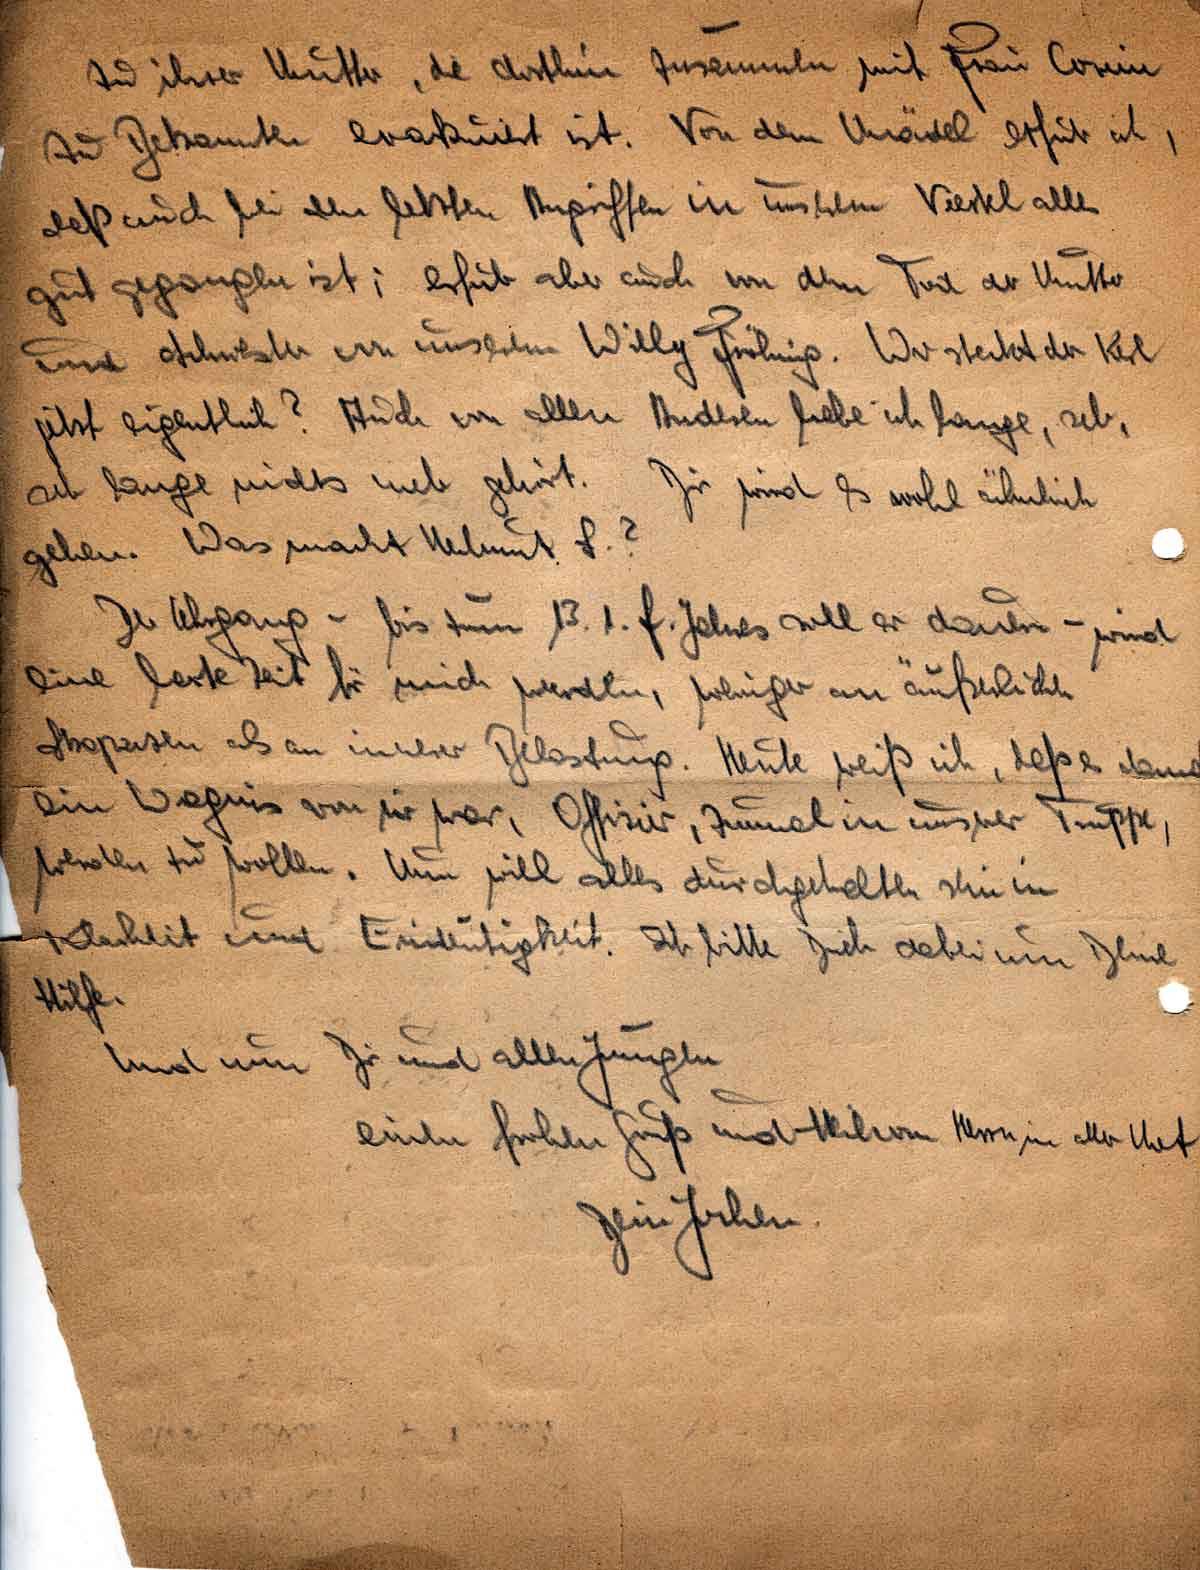 zu ihrer Mutter, die dorthin zusammen mit Frau Cosein
zu Bekannten evakuiert ist. Von dem Mädel erfuhr ich,
daß auch bei den letzten Angriffen in unserem Viertel alles
gut gegangen ist; erfuhr aber auch von dem Tod der Mutter
und Schwester von unserem Willy Fröhnig. Wo steckt der Kerl
jetzt eigentlich? Auch von allen Anderen habe ich lange, sehr,
sehr lange nichts mehr gehört. Dir wird es wohl ähnlich
gehen. Was macht Helmut S.?
Der Lehrgang – bis zum 13.1. f. Jahres soll er dauern – wird
eine harte Zeit für mich werden, weniger an äußerlichen
Strapazen als an innerer Belastung. Heute weiß ich, daß es damals
ein Wagnis von mir war, Offizier, zumal in unserer Truppe,
werden zu wollen. Nun will alles durchgehalten sein in
Klarheit und Eindeutigkeit. Ich bitte Dich dabei um Deine
Hilfe.
Und nun Dir und allen Jungen
einen frohen Gruß und Heil vom Herrn in aller Not
Dein Jochen.